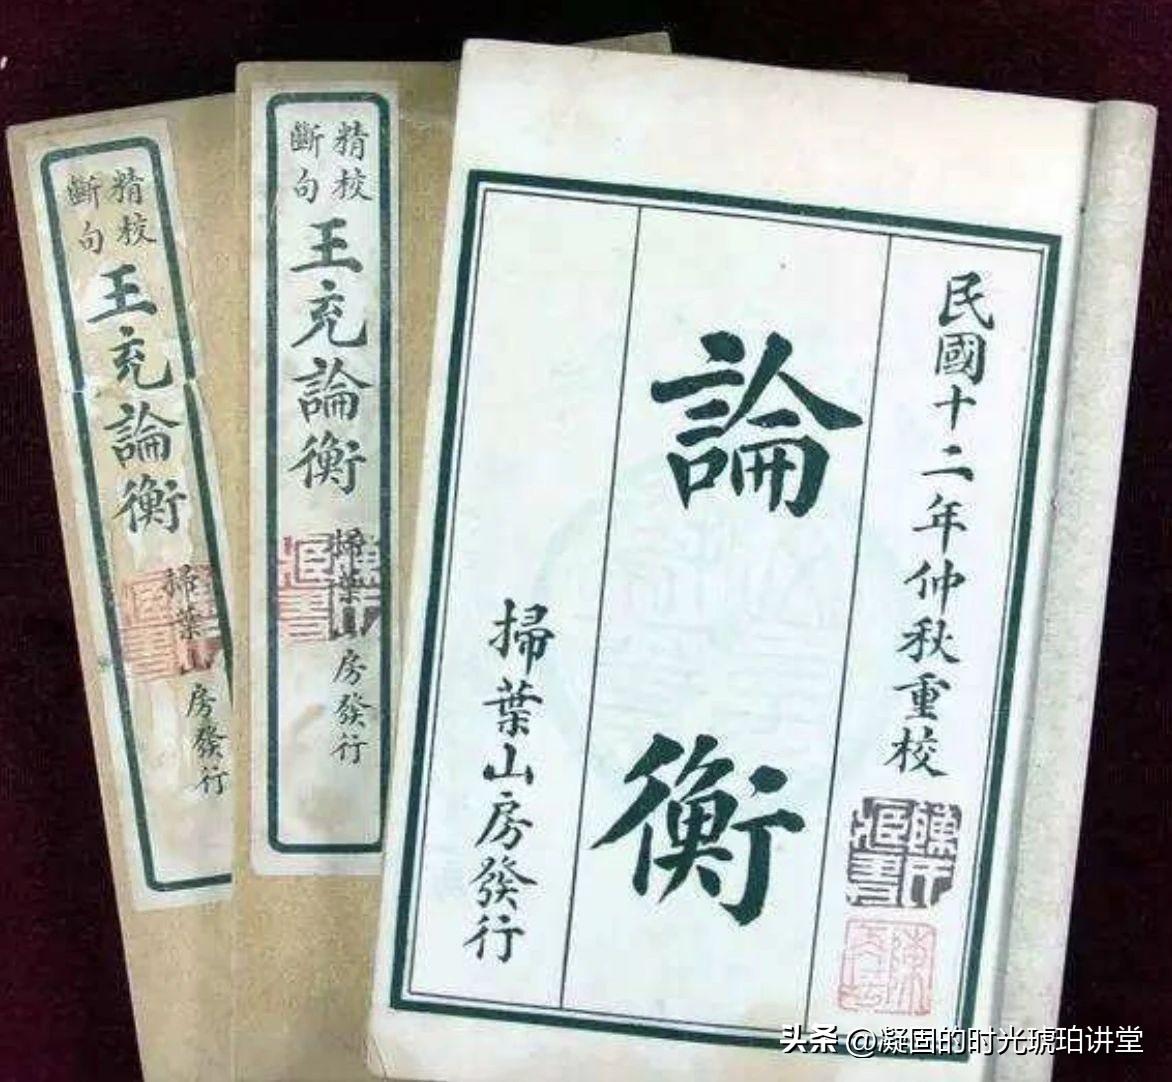 民國十二年仲秋重校
論衡
掃葉山房發行
精校
斷句
王充論衡
掃葉山房發行
精校
斷句
王充論衡
掃葉山房發行
头条 @凝固的时光琥珀讲堂